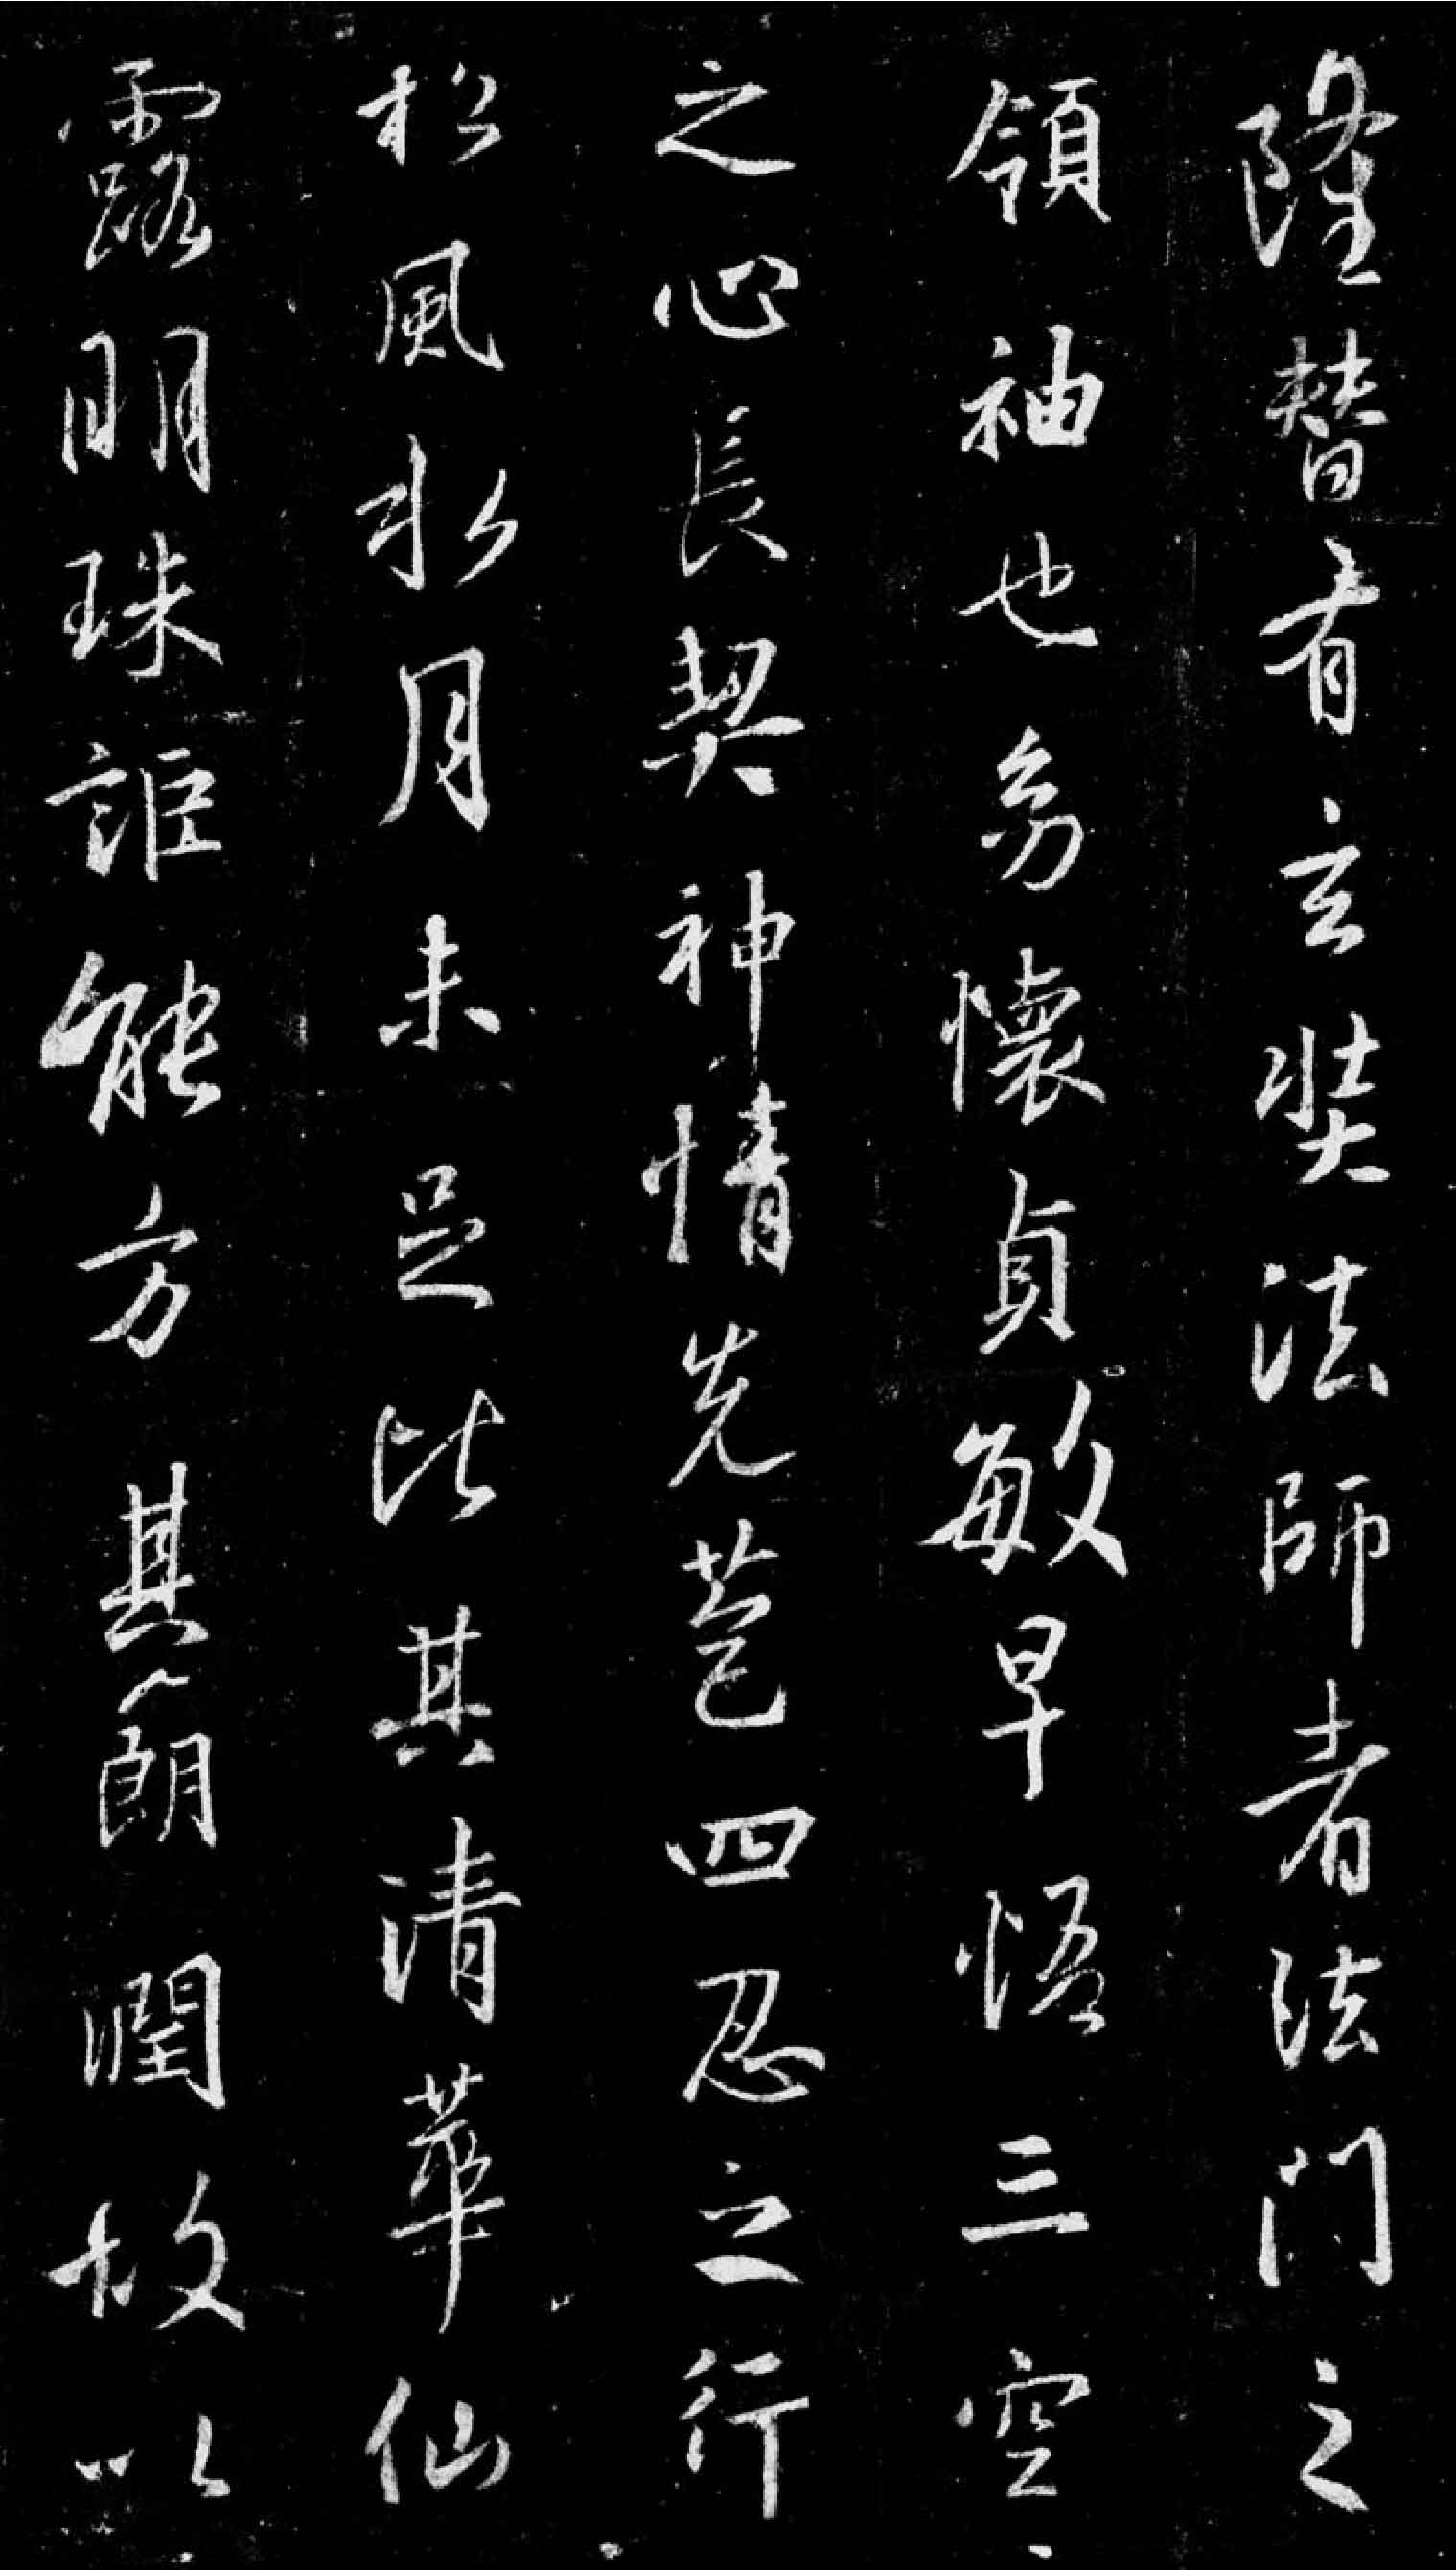 隆替有玄奘法師者法門之
領袖也幼懷貞敏早悟三空
之心長契神情先苞四忍之行
松風水月未足比其清華仙
露明珠詎能方其朗潤故以